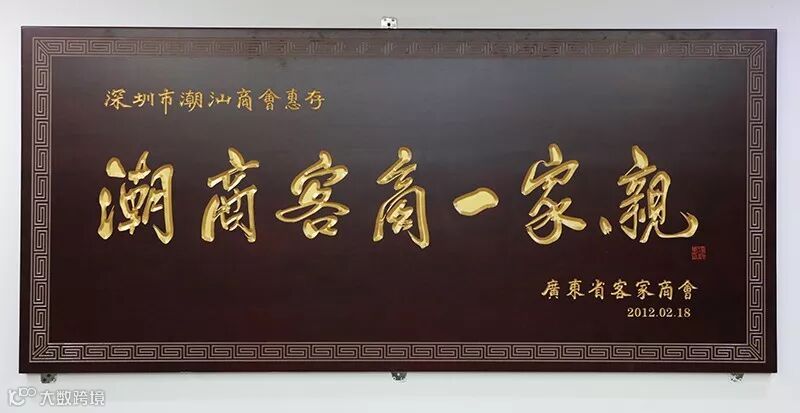 深圳市潮汕商會惠存
潮商客商一家親
廣東省客家商會
2012.02.18
大数跨境